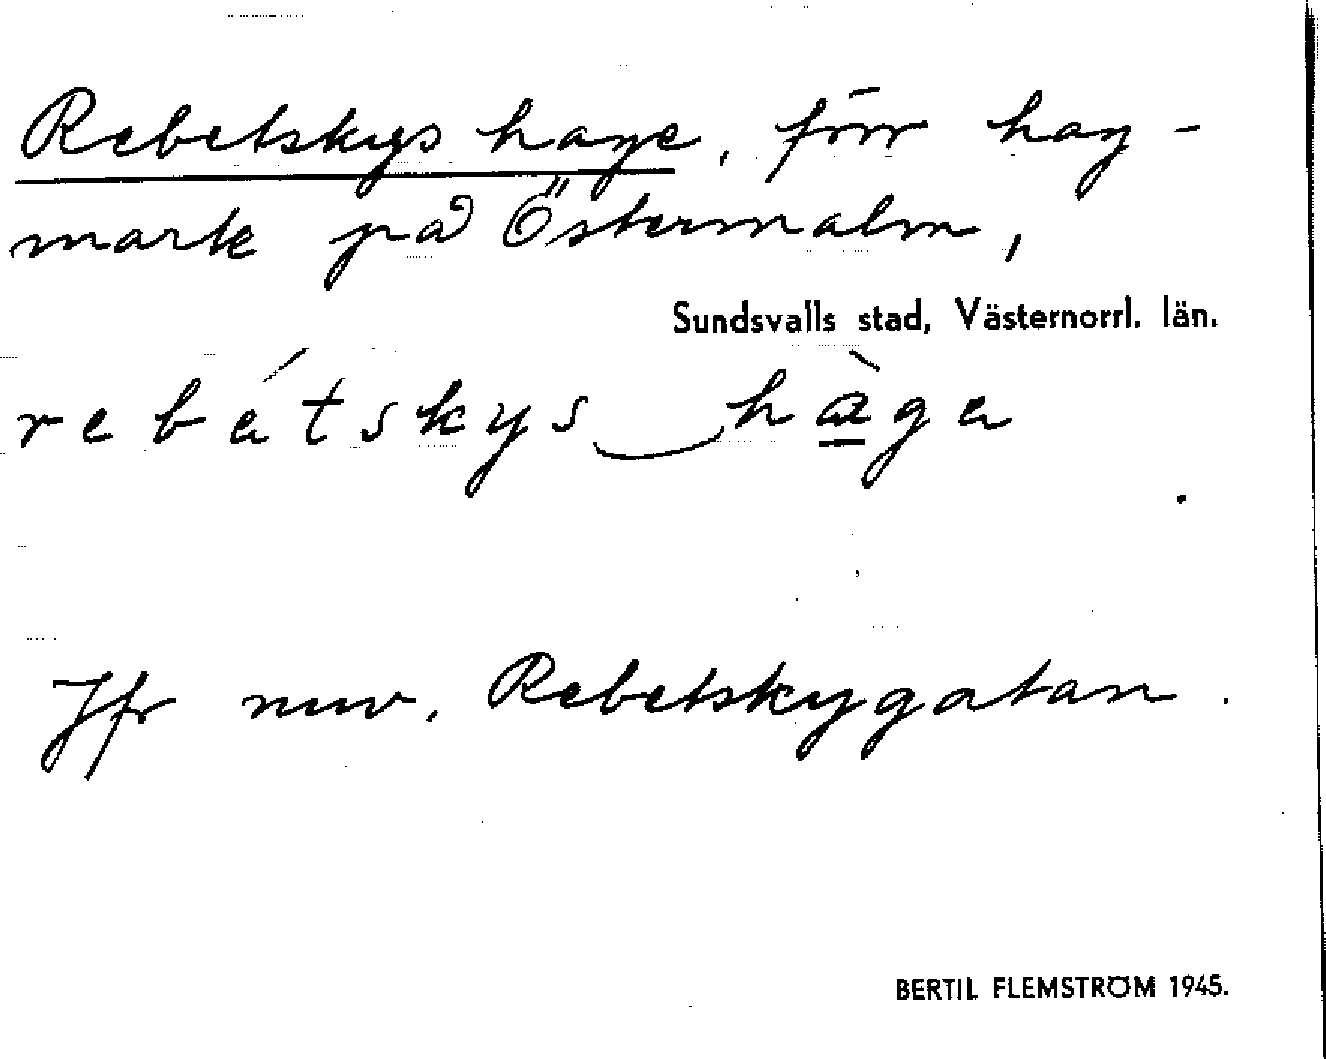 Rebetskys hage, förr hag-
mark på Östermalm,
Sundsvalls stad, Västernorrl. län.
rebétskys‿hàga
Jfr nuv. Rebetskygatan.
BERTIL FLEMSTRÖM 1945.